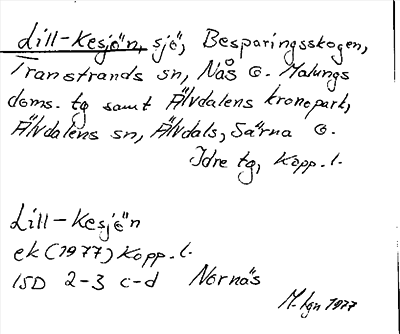 Lill-Kesjön, sjö, Besparingsskogen,
Transtrands sn, Nås o. Malungs
doms. tg samt Älvdalens kronopark,
Älvdalens sn, Älvdals, Särna o.
Idre tg, Kopp. l.
Lill-Kesjön
ek (1977) Kopp. l.
15D 2-3 c-d Nornäs
M. Lgn 1977